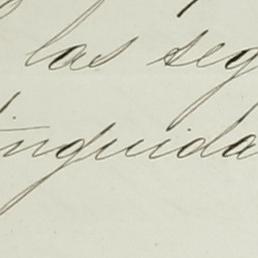 las seg
inguida